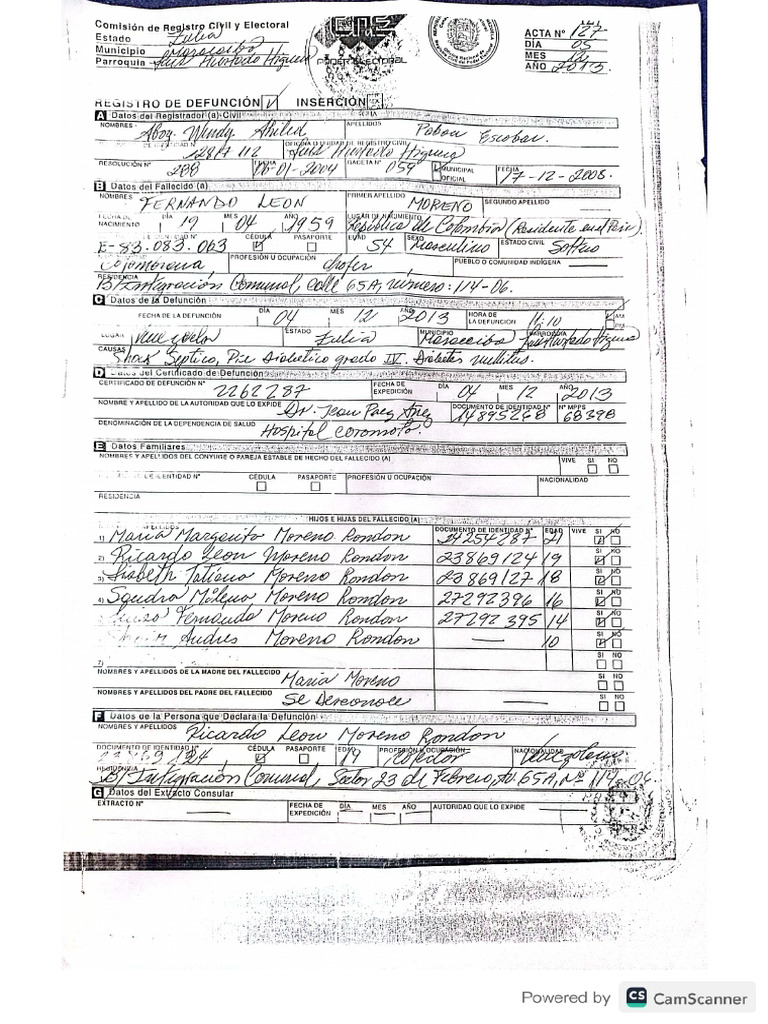 Comisión de Registro Civil y Electoral
Estado Zulia
Municipio Maracaibo
Parroquia Luis Hurtado Higuera
PODER ELECTORAL
ACTA Nº 127
DÍA 05
MES 12
AÑO 2013.
REGISTRO DE DEFUNCIÓN INSERCIÓN
A Datos del Registrador (a) Civil
NOMBRES Abog. Wendy APELLIDOS Pabon Escobar.
OFICINA O UNIDAD DE REGISTRO CIVIL Luis Hurtado Higuera
RESOLUCIÓN Nº 288 FECHA 06-01-2004 GACETA Nº 054 MUNICIPAL OFICIAL FECHA 17-12-2008.
B Datos del Fallecido (a)
NOMBRES FERNANDO LEON PRIMER APELLIDO MORENO SEGUNDO APELLIDO
FECHA DE NACIMIENTO DÍA 19 MES 04 AÑO 1959 LUGAR DE NACIMIENTO República de Colombia (Residente en el País)
E-83.083.063 CÉDULA PASAPORTE EDAD 54 SEXO Masculino ESTADO CIVIL Soltero
Colombiana PROFESIÓN U OCUPACIÓN Chofer PUEBLO O COMUNIDAD INDÍGENA
RESIDENCIA B/ Integración Comunal, calle 65A, número: 114-06.
C Datos de la Defunción
FECHA DE LA DEFUNCIÓN DÍA 04 MES 12 AÑO 2013 HORA DE LA DEFUNCIÓN 11:10 AM PM
LUGAR Venezuela ESTADO Zulia MUNICIPIO Maracaibo PARROQUIA Luis Hurtado Higuera
CAUSAS Shock Septico, Pie Diabetico grado IV. Diabetes mellitus.
D Datos del Certificado de Defunción
CERTIFICADO DE DEFUNCIÓN Nº 2262287 FECHA DE EXPEDICIÓN DÍA 04 MES 12 AÑO 2013
NOMBRE Y APELLIDO DE LA AUTORIDAD QUE LO EXPIDE Dr. Jean Paez DOCUMENTO DE IDENTIDAD Nº 14895268 Nº MPPS 68398
DENOMINACIÓN DE LA DEPENDENCIA DE SALUD Hospital Coromoto.
E Datos Familiares
NOMBRES Y APELLIDOS DEL CONYUGE O PAREJA ESTABLE DE HECHO DEL FALLECIDO (A) VIVE SI NO
DOCUMENTO DE IDENTIDAD Nº CÉDULA PASAPORTE PROFESIÓN U OCUPACIÓN NACIONALIDAD
RESIDENCIA
HIJOS E HIJAS DEL FALLECIDO (A)
DOCUMENTO DE IDENTIDAD Nº EDAD VIVE SI NO
1) Maria Margarita Moreno Rondon 24254287 21
2) Ricardo Leon Moreno Rondon 23869124 19 SI NO
3) Lisbeth Tatiana Moreno Rondon 23869127 18 SI NO
4) Sandra Milena Moreno Rondon 27292396 16 SI NO
Fernando Moreno Rondon 27292395 14 SI NO
Andres Moreno Rondon — 10 SI NO
7) SI NO
NOMBRES Y APELLIDOS DE LA MADRE DEL FALLECIDO Maria Moreno SI NO
NOMBRES Y APELLIDOS DEL PADRE DEL FALLECIDO Se Desconoce SI NO
F Datos de la Persona que Declara la Defunción
NOMBRES Y APELLIDOS Ricardo Leon Moreno Rondon
DOCUMENTO DE IDENTIDAD Nº 23869124 CÉDULA PASAPORTE EDAD 19 PROFESIÓN U OCUPACIÓN NACIONALIDAD Venezolana
RESIDENCIA B/ Integración Comunal, Sector 23 de Febrero, Av. 65A, Nº 114-06
G Datos del Extracto Consular
EXTRACTO Nº — FECHA DE EXPEDICIÓN DÍA — MES — AÑO — AUTORIDAD QUE LO EXPIDE —
Powered by CS CamScanner